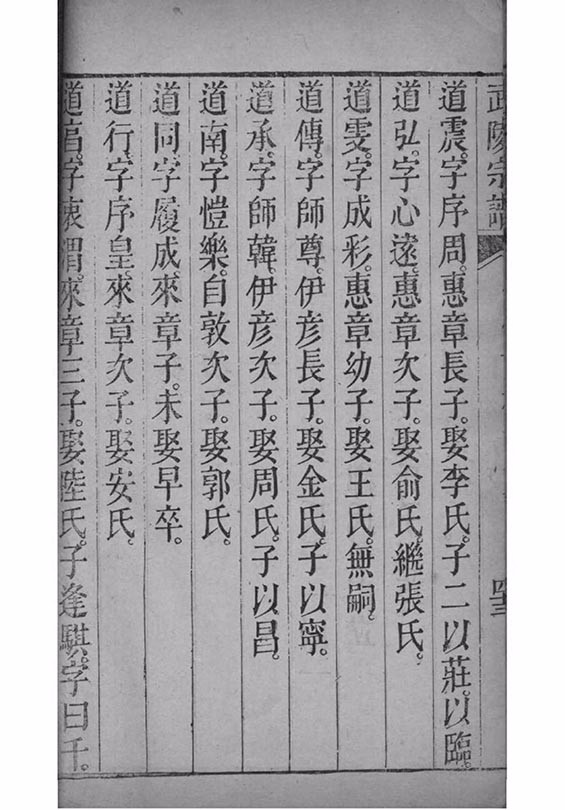 武陵宗譜
道震。字序周。惠章長子。娶李氏。子二以莊。以臨。
道弘。字心遠。惠章次子。娶俞氏。繼張氏。
道雯。字成彩。惠章幼子。娶王氏。無嗣。
道傳。字師尊。伊彦長子。娶金氏。子以寧。
道承。字師韓。伊彦次子。娶周氏。子以昌。
道南。字愷樂。自敦次子。娶郭氏。
道同。字履成。來章子。未娶早卒。
道行。字序皇。來章次子。娶安氏。
道富。字表渭。來章三子。娶陸氏。子逢騏。字曰千。